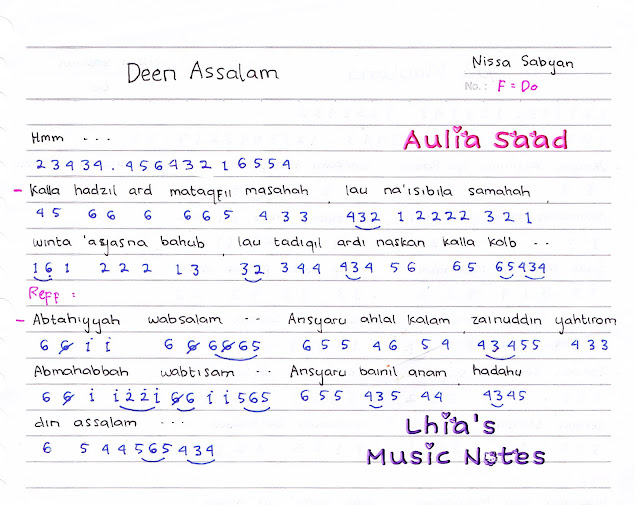 Deen Assalam
Nissa Sabyan
No.: F = Do
Hmm . . .
Aulia Saad
2 3 4 3 4 . 4 5 6 4 3 2 1 6 5 5 4
- Kalla hadzil ard mataqfii masahah lau na'isibila samahah
4 5 6 6 6 6 6 5 4 3 3 4 3 2 1 2 2 2 2 3 2 1
winta 'asyasna bahub lau tadiqil ardi naskan kalla kolb . .
1 6 1 2 2 2 1 3 3 2 3 4 4 4 3 4 5 6 6 5 6 5 4 3 4
Reff :
- Abtahiyyah wabsalam . . Ansyaru ahlal kalam zainuddin yahtirom
6 6 i i 6 6 6 6 6 5 6 5 5 4 6 5 4 4 3 4 5 5 4 3 3
Abmahabbah wabtisam . . Ansyaru bainil anam hadahu
6 6 i i 2 2 i 6 6 i i 5 6 5 6 5 5 4 3 5 4 4 4 3 4 5
din assalam . . .
6 5 4 4 5 6 5 4 3 4
Lhia's
Music Notes